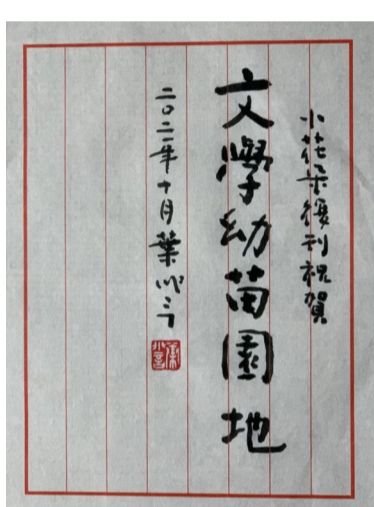 小花朵復刊祝賀
文學幼苗園地
二〇二一年十月葉